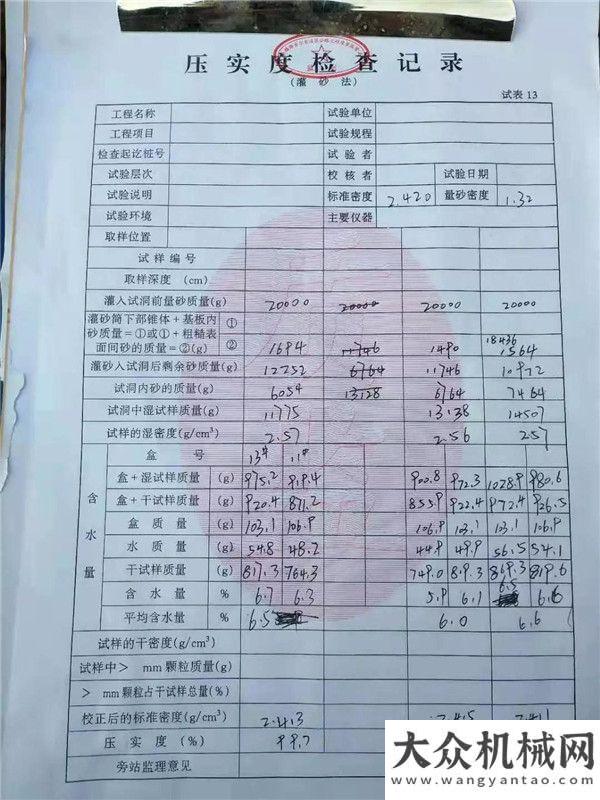 压实度检查记录
(灌砂法)
试表13
工程名称 试验单位
工程项目 试验规程
检查起讫桩号 试验者
试验层次 校核者 试验日期
试验说明 标准密度 2.420 量砂密度 1.32
试验环境 主要仪器
取样位置
试样编号
取样深度 (cm)
灌入试洞前量砂质量(g) 20000 20000 20000 20000
灌砂筒下部锥体+基板内 ①
砂质量=①或①+粗糙表
面间砂的质量=②(g) ② 1694 11746 1490 18436 1564
灌砂入试洞后剩余砂质量(g) 12252 6764 11746 10972
试洞内砂的质量(g) 6054 13128 6764 7464
试洞中湿试样质量(g) 11775 13138 14507
试样的湿密度(g/cm³) 2.57 2.56 2.57
含水量
盒号 13# 11#
盒+湿试样质量 (g) 975.2 919.4 900.8 972.3 1028.9 980.6
盒+干试样质量 (g) 920.4 871.2 855.9 922.4 972.4 926.5
盒质量 (g) 103.1 106.9 106.9 103.1 103.1 106.9
水质量 (g) 54.8 48.2 44.9 49.9 56.5 54.1
干试样质量 (g) 817.3 764.3 749.0 819.3 869.3 819.6
含水量 % 6.7 6.3 5.9 6.1 6.5 6.6
平均含水量 % 6.5 6.0 6.6
试样的干密度(g/cm³)
试样中> mm颗粒质量(g)
> mm颗粒占干试样总量(%)
校正后的标准密度(g/cm³) 2.413 2.415 2.411
压实度(%) 99.7
旁站监理意见
大众机械网
www.wangyantao.com